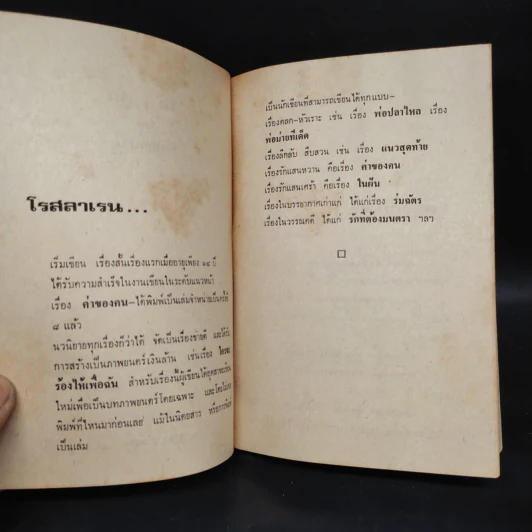 โรสลาเรน...
เริ่มเขียน เรื่องสั้นเรื่องแรกเมื่ออายุเพียง ๑๔ ปี
ได้รับความสำเร็จในงานเขียนในระดับแนวหน้า
เรื่อง ค่าของคน-ได้พิมพ์เป็นเล่มจำหน่ายเป็นครั้งที่
๘ แล้ว
นวนิยายทุกเรื่องก็ว่าได้ จัดเป็นเรื่องขายดี และได้รับ
การสร้างเป็นภาพยนตร์เงินล้าน เช่นเรื่อง ใครจะ
ร้องไห้เพื่อฉัน สำหรับเรื่องนี้ผู้เขียนได้
ใหม่เพื่อเป็นบทภาพยนตร์โดยเฉพาะ และ
พิมพ์ที่ไหนมาก่อนเลย แม้ในนิตยสาร หรือการพิมพ์
เป็นเล่ม
เป็นนักเขียนที่สามารถเขียนได้ทุกแบบ-
เรื่องตลก-หัวเราะ เช่น เรื่อง พ่อปลาไหล เรื่อง
พ่อม่ายทีเด็ด
เรื่องลึกลับ สืบสวน เช่น เรื่อง แนวสุดท้าย
เรื่องรักแสนหวาน คือเรื่อง ค่าของคน
เรื่องรักแสนเศร้า คือเรื่อง ในฝัน
เรื่องในบรรยากาศเก่าแก่ ได้แก่เรื่อง ร่มฉัตร
เรื่องในวรรณคดี ได้แก่ รักที่ต้องมนตรา ฯลฯ